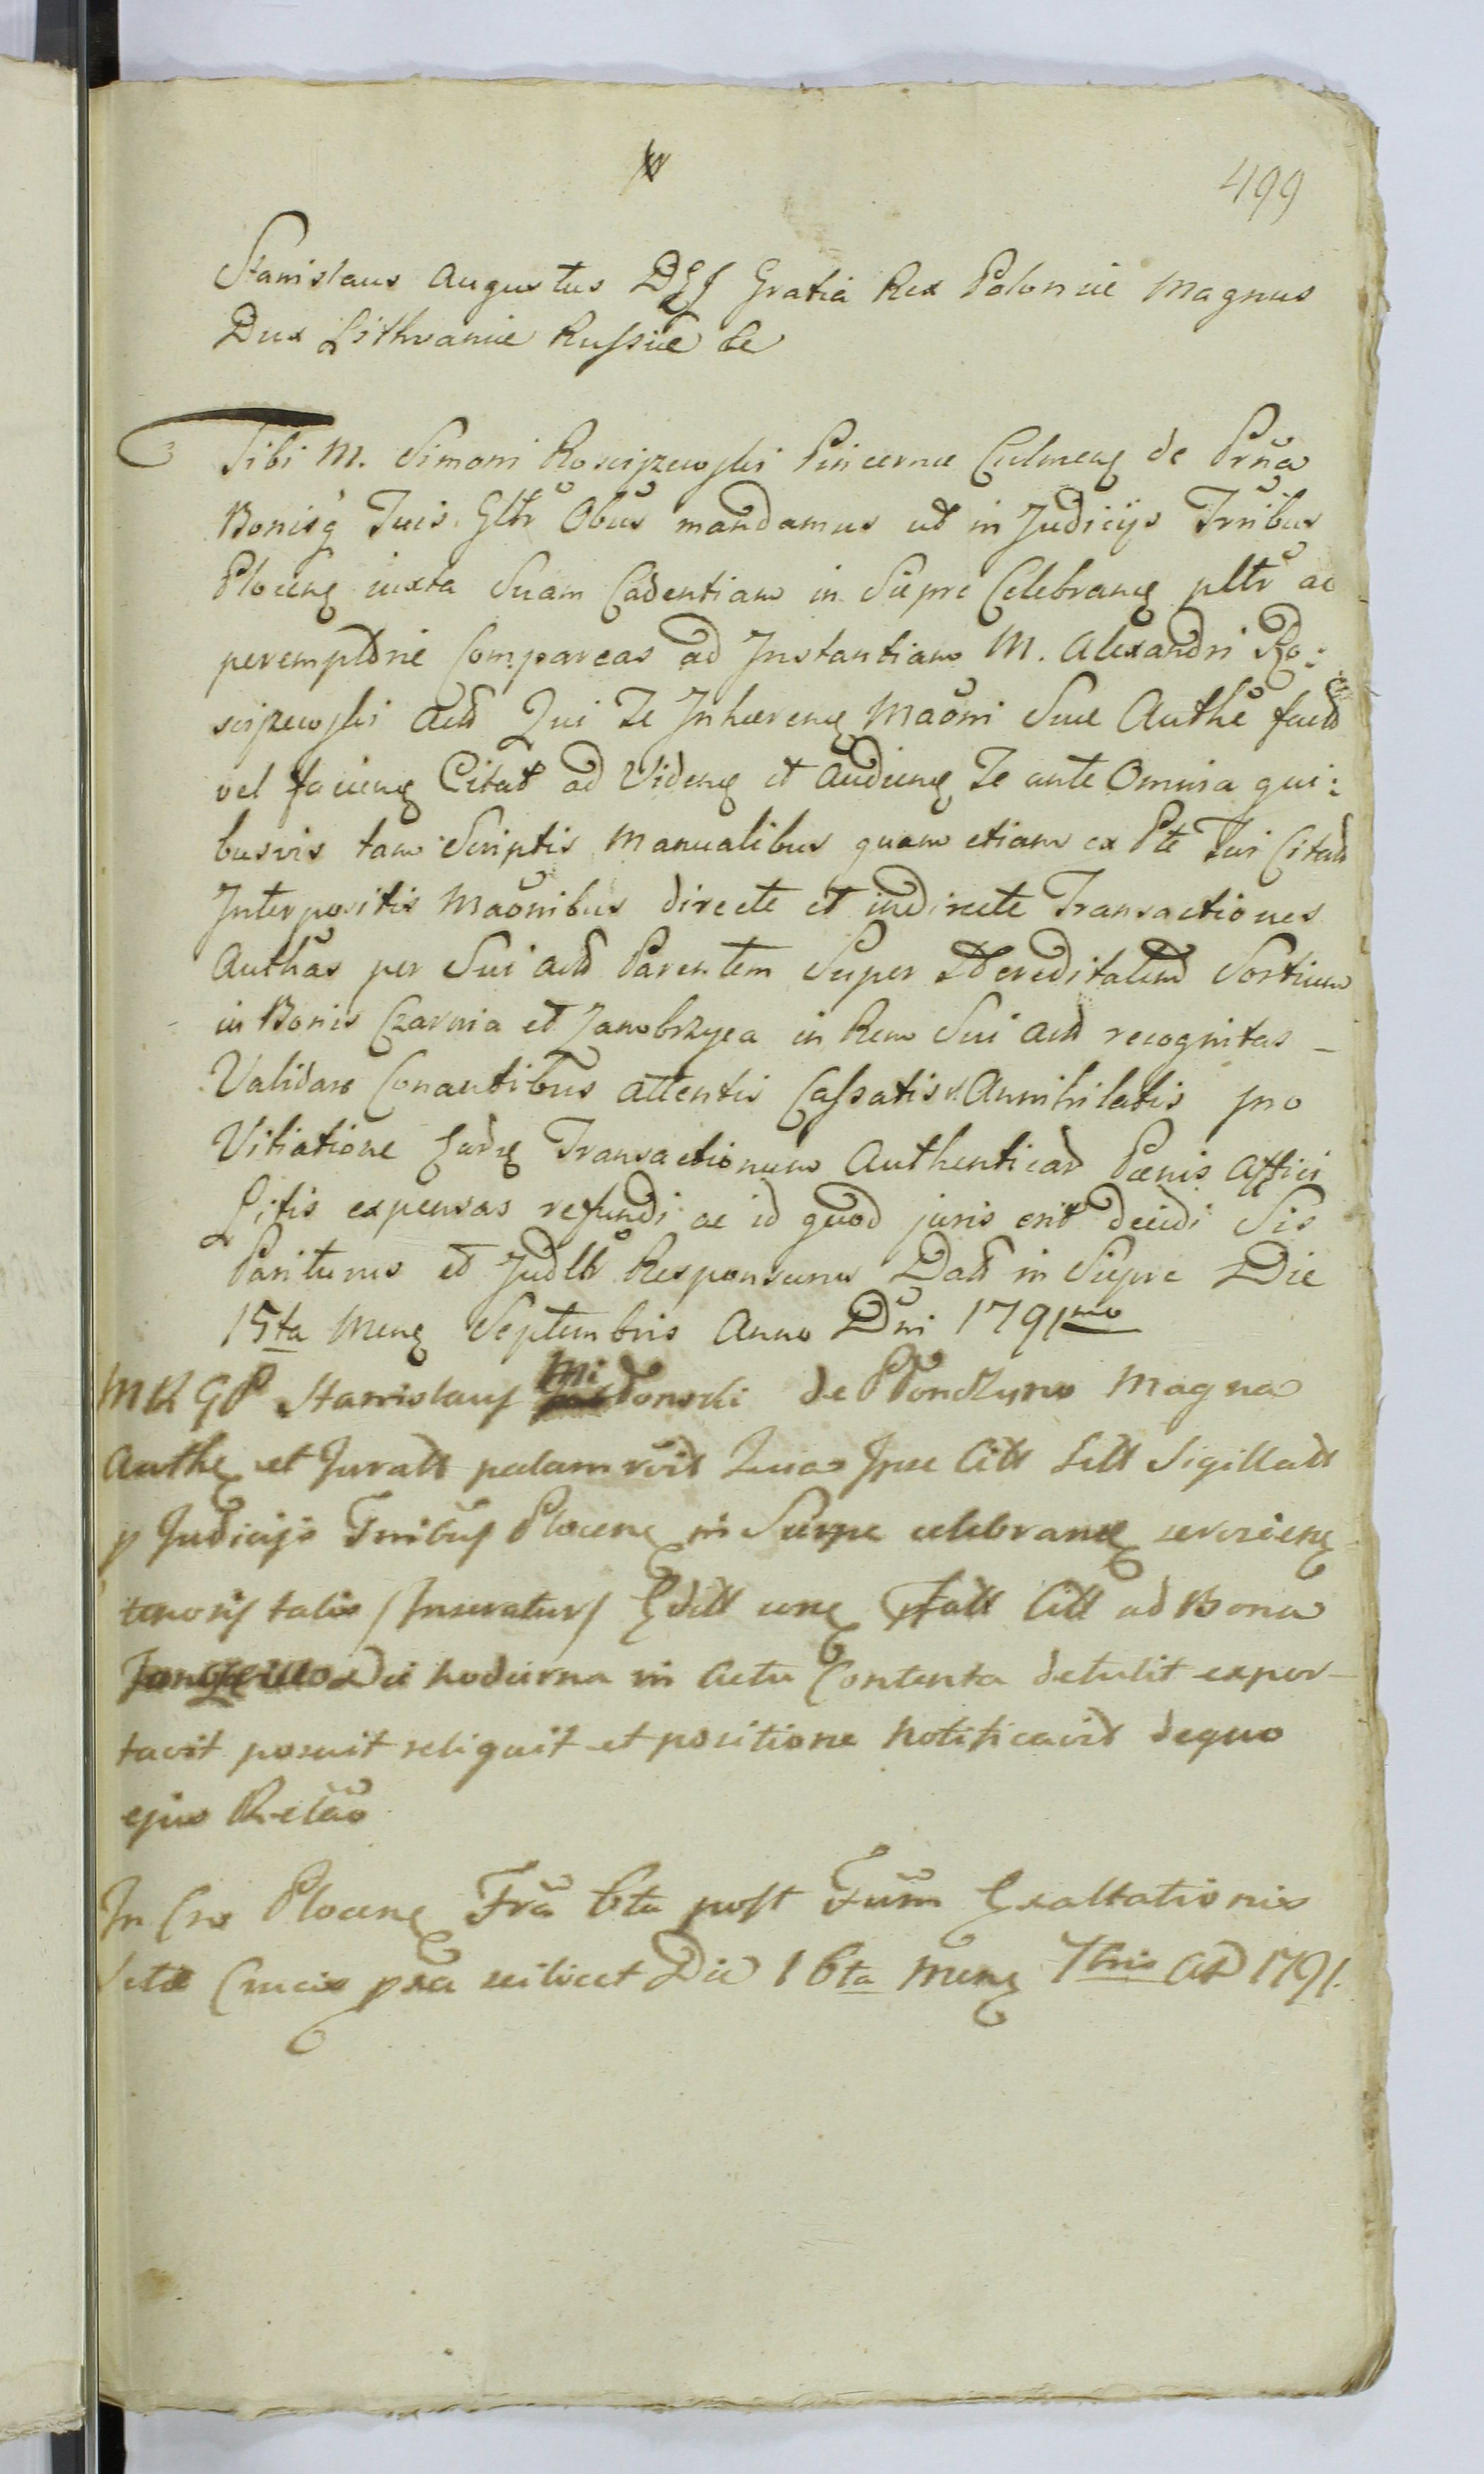 499
Stanislaus Augustus DEI Gratia Rex Poloniæ Magnus
Dux Lithvaniæ Russiæ &c
Tibi M. Simoni Rosciszewski Pincernæ Culmens de Prña
Bonisq Tuis Gltr Obus mandamus ut in Judicijs Trribus
Plocens iuxta Suam Cadentiam in Sierpc Celebrans pltr ac
peremptorie Compareas ad Instantiam M. Alexandri Ro:
sciszewski Actt Qui Te Inhærens Maõni Suæ Authæ factt
vel faciens Citat ad Videns et Audiens Te ante Omnia qui:
busvis tam Scriptis Manualibus quam etiam ex Pte Tui Citatt
Interpositis Maõnibus directe et indirecte Transactiones
Authas per Sui Actt Parentem Super Hereditatem Sortium
in Bonis Czarnia et Zambrzyca in Rem Sui Actt recognitas –
Validare Conantibus attentis Cassatis et Annihilatis pro
Vitiatione Eards Transactionum Authenticar Pænis Affici
Litis expensas refundi ac id quod juris erit decidi Sis
Pariturus et Judltr Responsurus Datt in Sierpc Die
15ta Mens Septembris Anno Dñi 1791mo
MRGP Stanislaus Mi donski de Magna
Auths et Juratt palam rõit Quia Ipse Citt Litt Sigillatt
p Judicijs Trribus Plocens in Sierpc celebrans serviens
tenoris talis /Inseratur/ Editt cone Citt ad Bona
Die hodierna in Actu Contenta detulit expor–
tavit posuit reliquit et positione notificavit dequo
ejus Relão
In Cro Plocens Fria 6ta post Fum Exaltationis
Sctæ Crucis pxa scilicet Die 16ta Mens 7bris AD 1791.